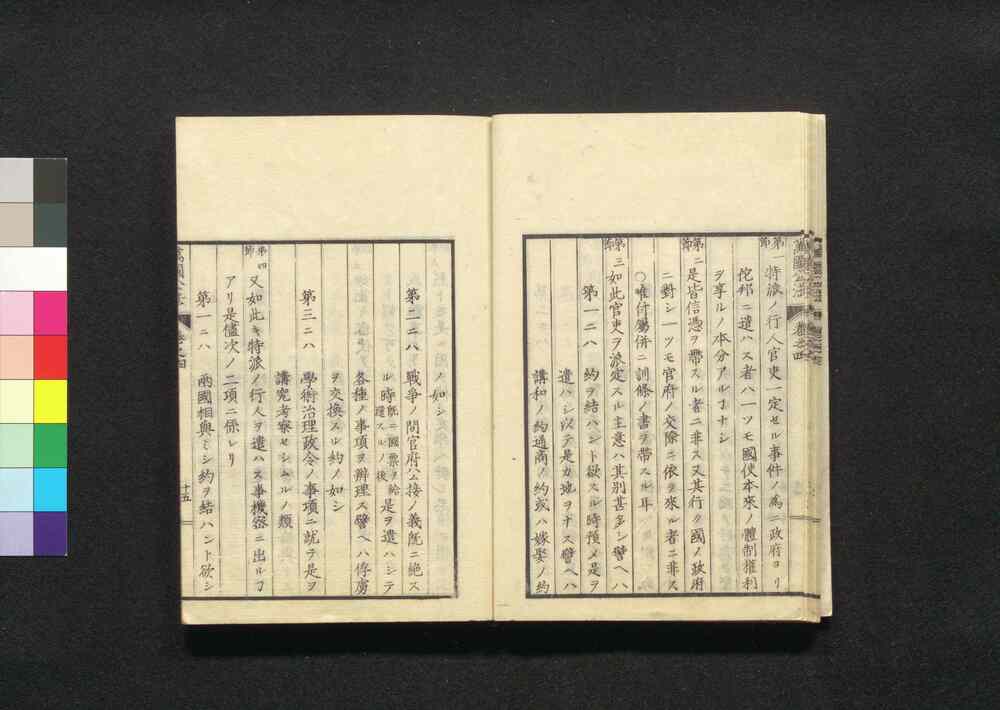 第一節 特派ノ行人官吏一定セル事件ノ為ニ政府ヨリ
佗邦ニ遣ハス者ハ一ツモ國使本來ノ體制權利
ヲ享ルノ本分アルヿナシ
第二節 是皆信憑ヲ帶スル者ニ非ス又其行ク國ノ政府
ニ對シ一ツモ官府ノ交際ニ依テ來ル者ニ非ス
〇唯付屬併ニ訓條ノ書ヲ帶スル耳
第三節 如此官吏ヲ派定スル主意ハ其別甚多シ譬ヘハ
第一ニハ 約ヲ結ハント欲スル時預メ是ヲ
遣ハシ以テ是カ地ヲナス譬ヘハ
講和ノ約通商ノ約或ハ嫁娶ノ約
ノ如シ
第二ニハ 戰爭ノ間官府公接ノ義既ニ絶ス
ル時既ニ國票ヲ給還スルノ後是ヲ遣ハシテ
各種ノ事項ヲ辨理ス譬ヘハ俘虜
ヲ交換スル約ノ如シ
第三ニハ 學術治理政令ノ事項ニ就テ是ヲ
講究考察セシムルノ類
第四節 又如此キ特派ノ行人ヲ遣ハス事機密ニ出ルヿ
アリ是儘次ノ二項ニ係レリ
第一ニハ 兩國相與ミシ約ヲ結ハント欲シ
萬國公法 卷之四 十五